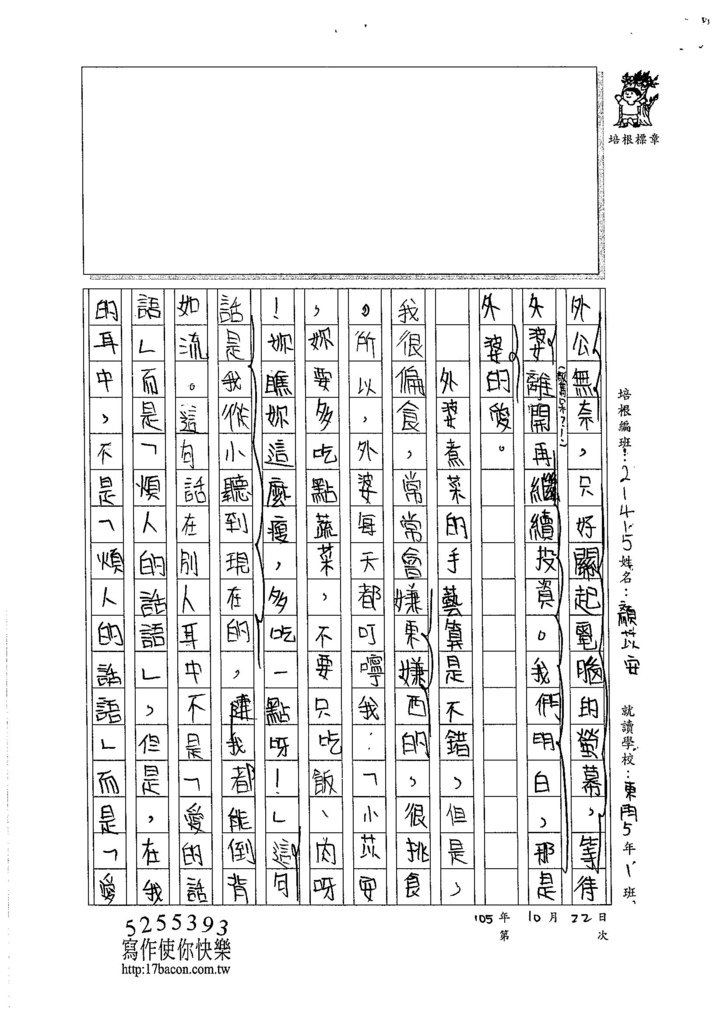 培根標章
培根編班：21415 姓名：顏苡安 就讀學校：東門5年1班
外公無奈，只好關起電腦的螢幕，等待
外婆離開再繼續投資。我們明白，那是
外婆的愛。
外婆煮菜的手藝算是不錯，但是，
我很偏食，常常會嫌東嫌西的，很挑食
。所以，外婆每天都叮嚀我：「小苡安
，妳要多吃點蔬菜，不要只吃飯、肉呀
！妳瞧妳這麼瘦，多吃一點呀！」這句
話是我從小聽到現在的，連我都能倒背
如流。這句話在別人耳中不是「愛的話
語」而是「煩人的話語」，但是，在我
的耳中，不是「煩人的話語」而是「愛
105年10月22日
第 次
5255393
寫作使你快樂
http:17bacon.com.tw